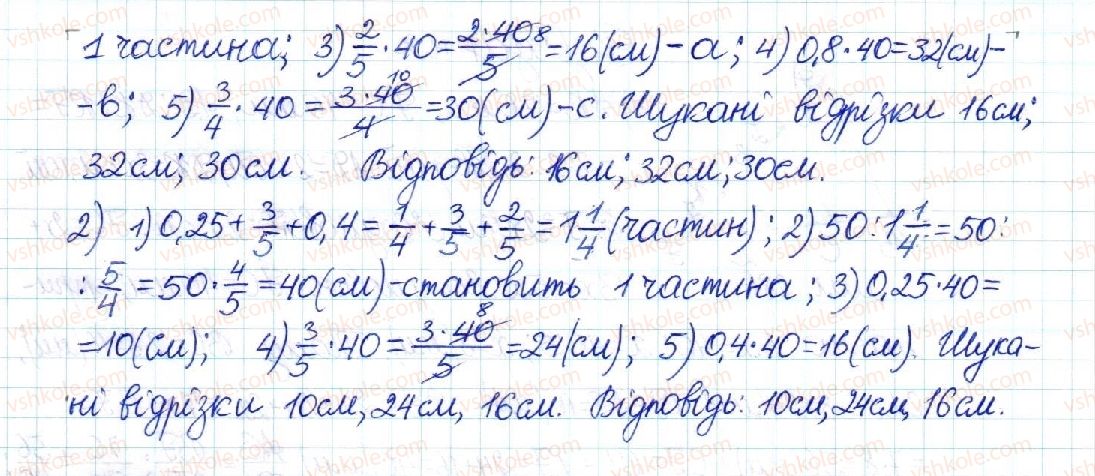 1 частина; 3) 2/5 · 40 = 2·40/5 8 = 16 (см) – a; 4) 0,8 · 40 = 32 (см) –
– b; 5) 3/4 · 40 = 3·40/4 10 = 30 (см) – c. Шукані відрізки 16 см;
32 см; 30 см. Відповідь: 16 см; 32 см; 30 см.
2) 1) 0,25 + 3/5 + 0,4 = 1/4 + 3/5 + 2/5 = 1 1/4 (частин); 2) 50 : 1 1/4 = 50 :
: 5/4 = 50 · 4/5 = 40 (см) – становить 1 частина; 3) 0,25 · 40 =
= 10 (см); 4) 3/5 · 40 = 3·40/5 8 = 24 (см); 5) 0,4 · 40 = 16 (см). Шука-
ні відрізки 10 см, 24 см, 16 см. Відповідь: 10 см, 24 см, 16 см.